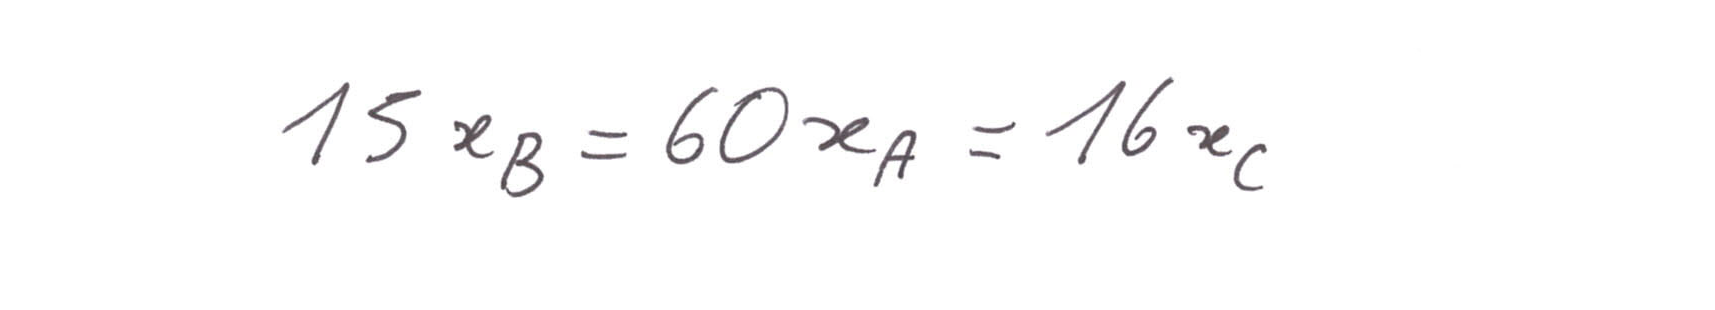 15 x_B = 60 x_A = 16 x_C